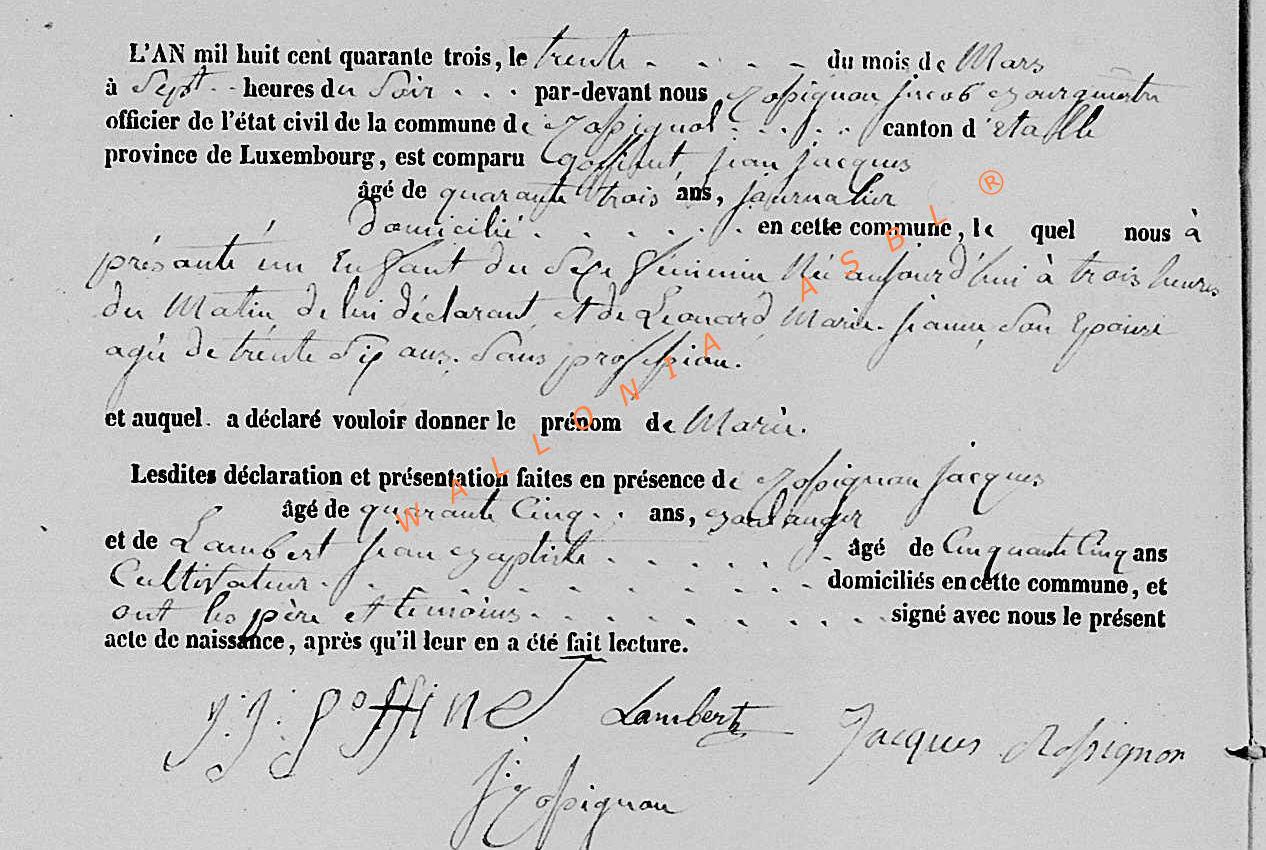 L'AN mil huit cent quarante trois, le trente - - - - du mois de Mars
à Sept - - heures du Soir - - - par-devant nous Rossignon Jacob Bourgmestre
officier de l'état civil de la commune de Rossignol - - - - - canton d'Etalle
province de Luxembourg, est comparu Goffinet, jean jacques
âgé de quarante trois ans, journalier
domicilié - - - - - - en cette commune, le quel nous à
présanté un Enfant du Sexe féminin Né aujourd'hui à trois heures
du Matin de lui déclarant, et de Léonard, Marie-jeanne, Son Epouse
agée de trente Six ans. Sans profession.
et auquel a déclaré vouloir donner le prénom de Marie.
Lesdites déclaration et présentation faites en présence de Rossignon jacques
âgé de quarante Cinq - - ans, Boulanger
et de Lambert jean Baptiste - - - - - - âgé de Cinquante Cinq ans
Cultivateur - - - - - - - - - domiciliés en cette commune, et
ont les père et temoins - - - - - - - - - signé avec nous le présent
acte de naissance, après qu'il leur en a été fait lecture.
J. J. goffinet Lambert Jacques Rossignon
J Rossignon
WALLONIA ASBL ®